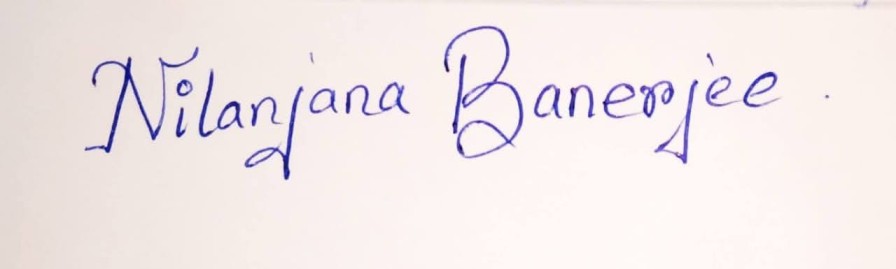 Nilanjana Banerjee.